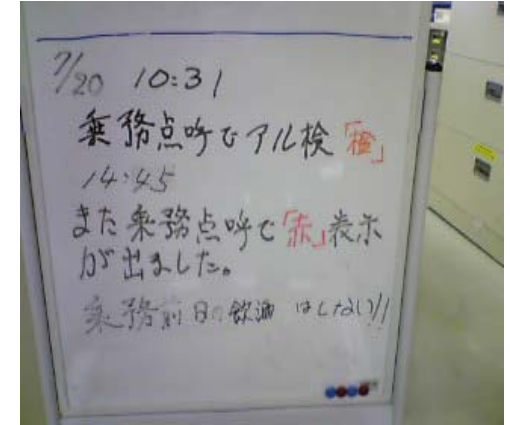 7/20 10:31
乗務点呼でアル検「橙」
14:45
また乗務点呼で「赤」表示
が出ました。
乗務前日の飲酒 はしない!!